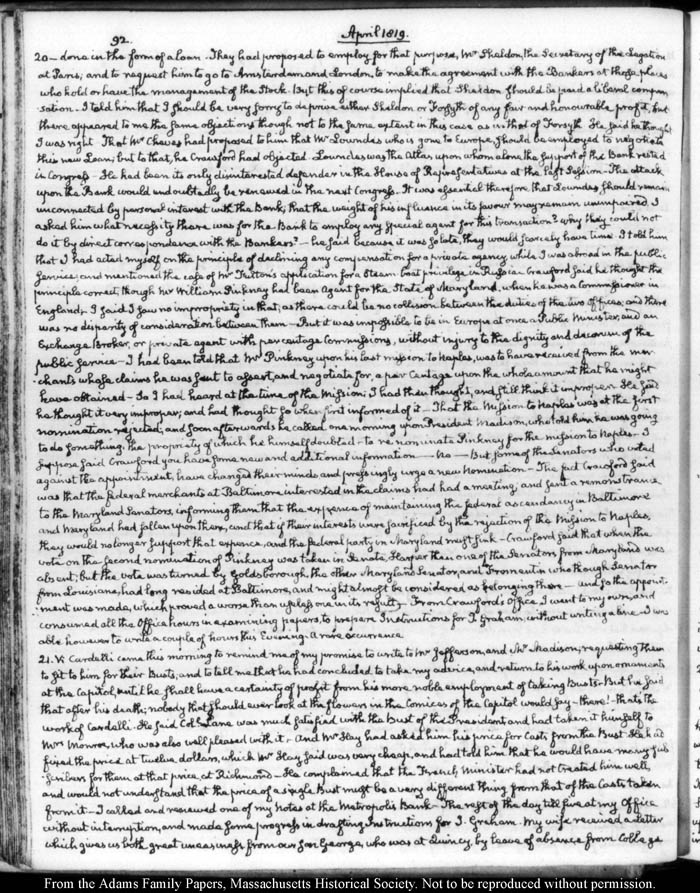 92.
April 1819.
20 — done in the form of a loan. They had proposed to employ for that purpose, Mr Sheldon, the Secretary of the Legation
at Paris; and to request him to go to Amsterdam and London, to make the agreement with the Bankers at those places
who hold or have the management of the Stock. But this of course implied that Sheldon should be paid a liberal compen-
sation. I told him that I should be very sorry to deprive either Sheldon or Forsyth of any fair and honourable profit, but
there appeared to me the same objections though not to the same extent in this case as in that of Forsyth. He said he thought
I was right. That Mr Cheves had proposed to him that Mr Lowndes who is gone to Europe, should be employed to negotiate
this new Loan; but to that, he Crawford had objected. Lowndes was the Atlas upon whom alone the support of the Bank rested
in Congress. He had been its only disinterested defender in the House of Representatives at the last Session. The attack
upon the Bank would undoubtedly be renewed in the next Congress. It was essential therefore, that Lowndes, should remain
unconnected by personal interest with the Bank, that the weight of his influence in its favour may remain unimpaired. I
asked him what necessity there was for the Bank to employ any special agent for this transaction? why they could not
do it by direct correspondence with the Bankers? — he said because it was so late, they would scarcely have time. I told him
that I had acted myself on the principle of declining any compensation for a private agency while I was abroad in the public
service; and mentioned the case of Mr Fulton's application for a Steam boat privilege in Russia. Crawford said he thought the
principle correct, though Mr William Pinkney had been Agent for the State of Maryland, when he was a Commissioner in
England. I said I saw no impropriety in that, as there could be no collision between the duties of the two offices; and there
was no disparity of consideration between them — But it was impossible to be in Europe at once a Public Minister, and an
Exchange Broker, or private agent with per centage Commissions, without injury to the dignity and decorum of the
public service — I had been told that Mr Pinkney upon his last mission to Naples, was to have received from the mer-
chants whose claims he was sent to assert, and negotiate for, a per Centage upon the whole amount that he might
have obtained — So I had heard at the time of the Mission; I had then thought, and still think it improper. He said
he thought it very improper; and had thought so when first informed of it — That the Mission to Naples was at the first
nomination rejected; and soon afterwards he called one morning upon President Madison, who told him he was going
to do something, the propriety of which he himself doubted — to re-nominate Pinkney for the mission to Naples — I
suppose said Crawford you have some new and additional information — No — But some of the Senators who voted
against the appointment, have changed their minds and pressingly urge a new nomination — The fact Crawford said
was that the federal merchants at Baltimore interested in the claims had had a meeting, and sent a remonstrance
to the Maryland Senators, informing them that the expence of maintaining the federal ascendancy in Baltimore
and Maryland had fallen upon them, and that if their interests were sacrificed by the rejection of the Mission to Naples,
they would no longer support that expence, and the federal party in Maryland must sink — Crawford said that when the
vote on the second nomination of Pinkney was taken in Senate, Harper then one of the Senators from Maryland was
absent; but the vote was turned by Goldsborough, the other Maryland Senator, and Fromentin who though Senator
from Louisiana, had long resided at Baltimore, and might almost be considered as belonging there — and so the appoint-
ment was made, which proved a worse than useless one in its result. From Crawford's Office I went to my own, and
consumed all the Office hours in examining papers, to prepare Instructions for J. Graham, without writing a line. I was
able however to write a couple of hours this Evening. A rare occurrence.
21. V: Cardelli came this morning to remind me of my promise to write to Mr Jefferson, and Mr Madison; requesting them
to sit to him for their Busts; and to tell me that he had concluded to take my advice, and return to his work upon ornaments
at the Capitol, until he shall have a certainty of profit from his more noble employment of taking Busts. But he said
that after his death; nobody that should ever look at the flowers in the Cornices of the Capitol would say — there! — that's the
work of Cardelli. He said Coll. Lane was much satisfied with the Bust of the President and had taken it himself to
Mrs Monroe, who was also well pleased with it. And Mr Hay had asked him his price for Casts from the Bust. He had
fixed the price at twelve dollars, which Mr Hay said was very cheap, and had told him that he would have many sub-
scribers for them at that price at Richmond — He complained that the French Minister had not treated him well,
and would not understand that the price of a single Bust must be a very different thing from that of the Casts taken
from it — I called and renewed one of my notes at the Metropolis Bank — The rest of the day till five at my Office
without interruption, and made some progress in drafting Instructions for J. Graham. My wife received a Letter
which gives us both great uneasiness from our son George, who was at Quincy, by leave of absence from College
From the Adams Family Papers, Massachusetts Historical Society. Not to be reproduced without permission.